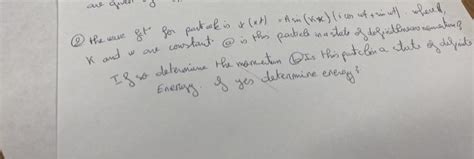 are given by
② the wave fxt for particle is ψ(x,t) = A sin(kx)(i cos wt + sin wt). where
K and w are constant. ⓐ is this particle in a state of defined linear momentum?
If so determine the momentum ⓑ Is this particle a state of definite
Energy. If yes determine energy?